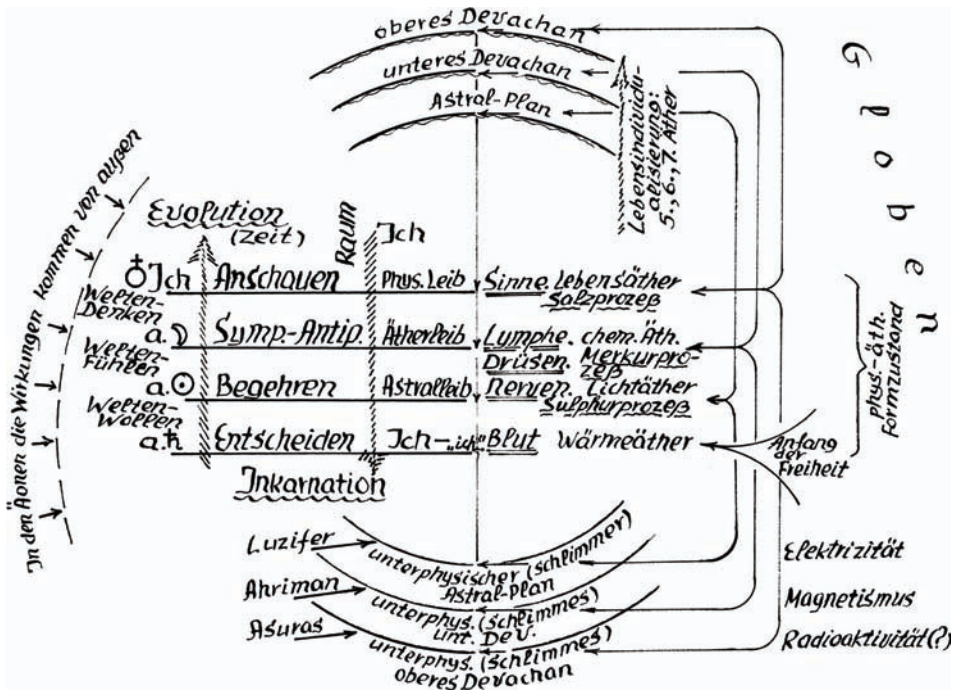 oberes Devachan
unteres Devachan
Astral-Plan
Lebensindividu-
alisierung:
5., 6., 7. Äther
Globen
In den Äonen die Wirkungen kommen von außen
Evolution
(Zeit)
Raum
Ich
♁ Ich Anschauen Phys. Leib Sinne. Lebensäther
Salzprozeß
Welten-
Denken
a.☽ Symp.-Antip. Ätherleib Lymphe. chem. Äth.
Drüsen. Merkurpro-
zeß
Welten-
Fühlen
a.☉ Begehren Astralleib Nerven. Lichtäther
Sulphurprozeß
Welten-
Wollen
a.♄ Entscheiden Ich-„ich“ Blut Wärmeäther
Inkarnation
Anfang
der
Freiheit
phys.-äth.
Formzustand
Luzifer
unterphysischer (schlimmer)
Astral-Plan
Elektrizität
Ahriman
unterphys. (schlimmes)
unt. Dev.
Magnetismus
Asuras
unterphys. (schlimmes)
oberes Devachan
Radioaktivität (?)